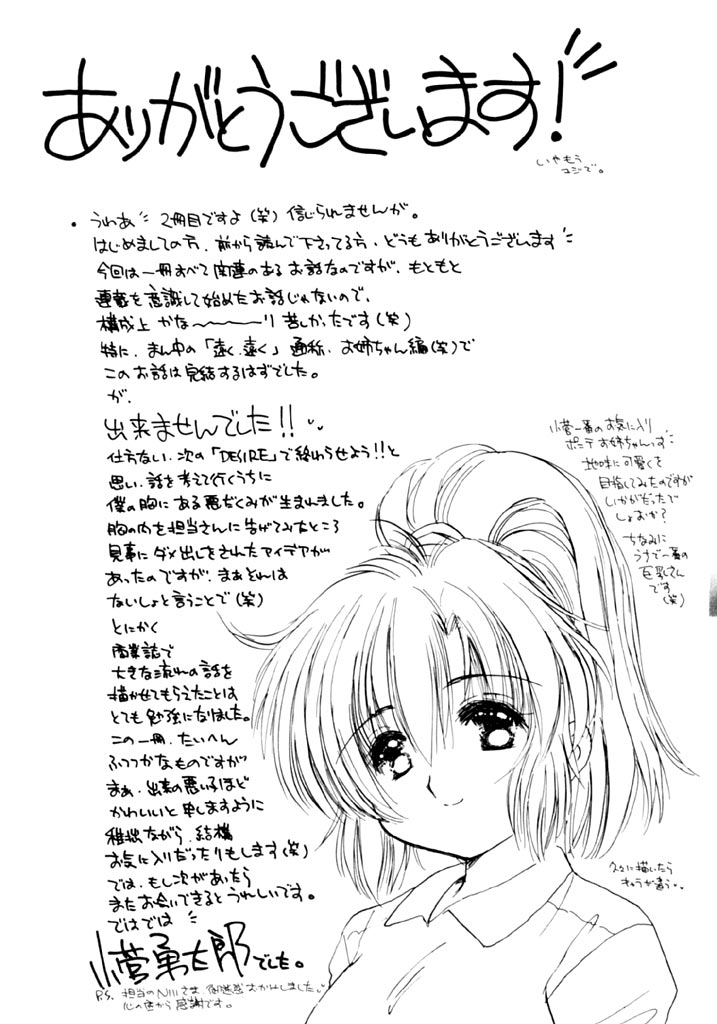 ありがとうございます!
いやもう
マジで。
・うわあ 2冊目ですよ(笑)信じられませんが。
はじめましての方、前から読んで下さってる方、どうもありがとうございます
今回は一冊すべて関連のあるお話なのですが、もともと
連載を意識して始めたお話じゃないので、
構成上かな〜〜〜り苦しかったです(笑)
特に、まん中の「遠く、遠く」通称、お姉ちゃん編(笑)で
このお話は完結するはずでした。
が、
出来ませんでした!!
仕方ない、次の「DESIRE」で終わらせよう!!と
思い、話を考えて行くうちに
僕の胸にある悪だくみが生まれました。
胸の内を担当さんに告げてみたところ
見事にダメ出しをされたアイデアが
あったのですが、まぁそれは
ないしょと言うことで(笑)
とにかく
商業誌で
大きな流れの話を
描かせてもらえたことは
とても勉強になりました。
この一冊、たいへん
ふつつかなものですが
まぁ、出来の悪い子ほど
かわいいと申しますように
稚拙ながら、結構
お気に入りだったりもします(笑)
では、もし次があったら
またお会いできるとうれしいです。
ではでは
小菅勇太郎でした。
P.S. 担当のNIIIさま、御迷惑おかけしました。
心の底から感謝です。
小菅一番のお気に入り
ポニテお姉ちゃんっす
地味に可愛くを
目指してみたのですが
いかがだったで
しょおか?
ちなみに
うちで一番の
巨乳さん
です
(笑)
久々に描いたら
キャラが違う・・